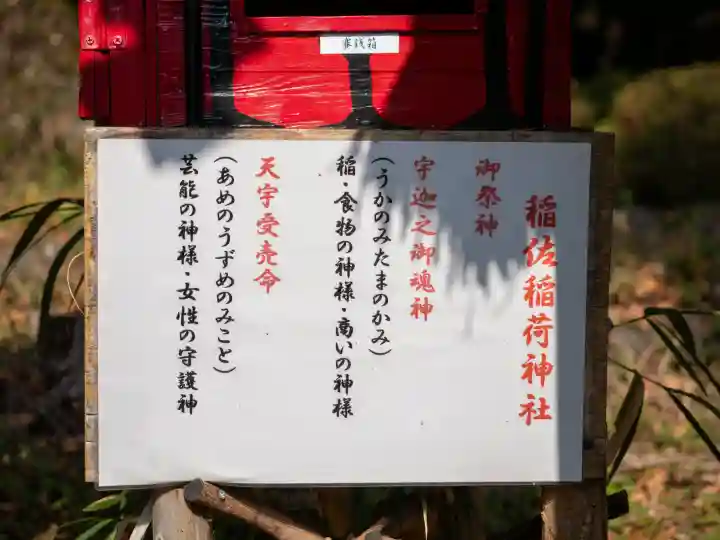 賽銭箱
稲佐稲荷神社
御祭神
宇迦之御魂神
(うかのみたまのかみ)
稲・食物の神様・商いの神様
天宇受売命
(あめのうずめのみこと)
芸能の神様・女性の守護神